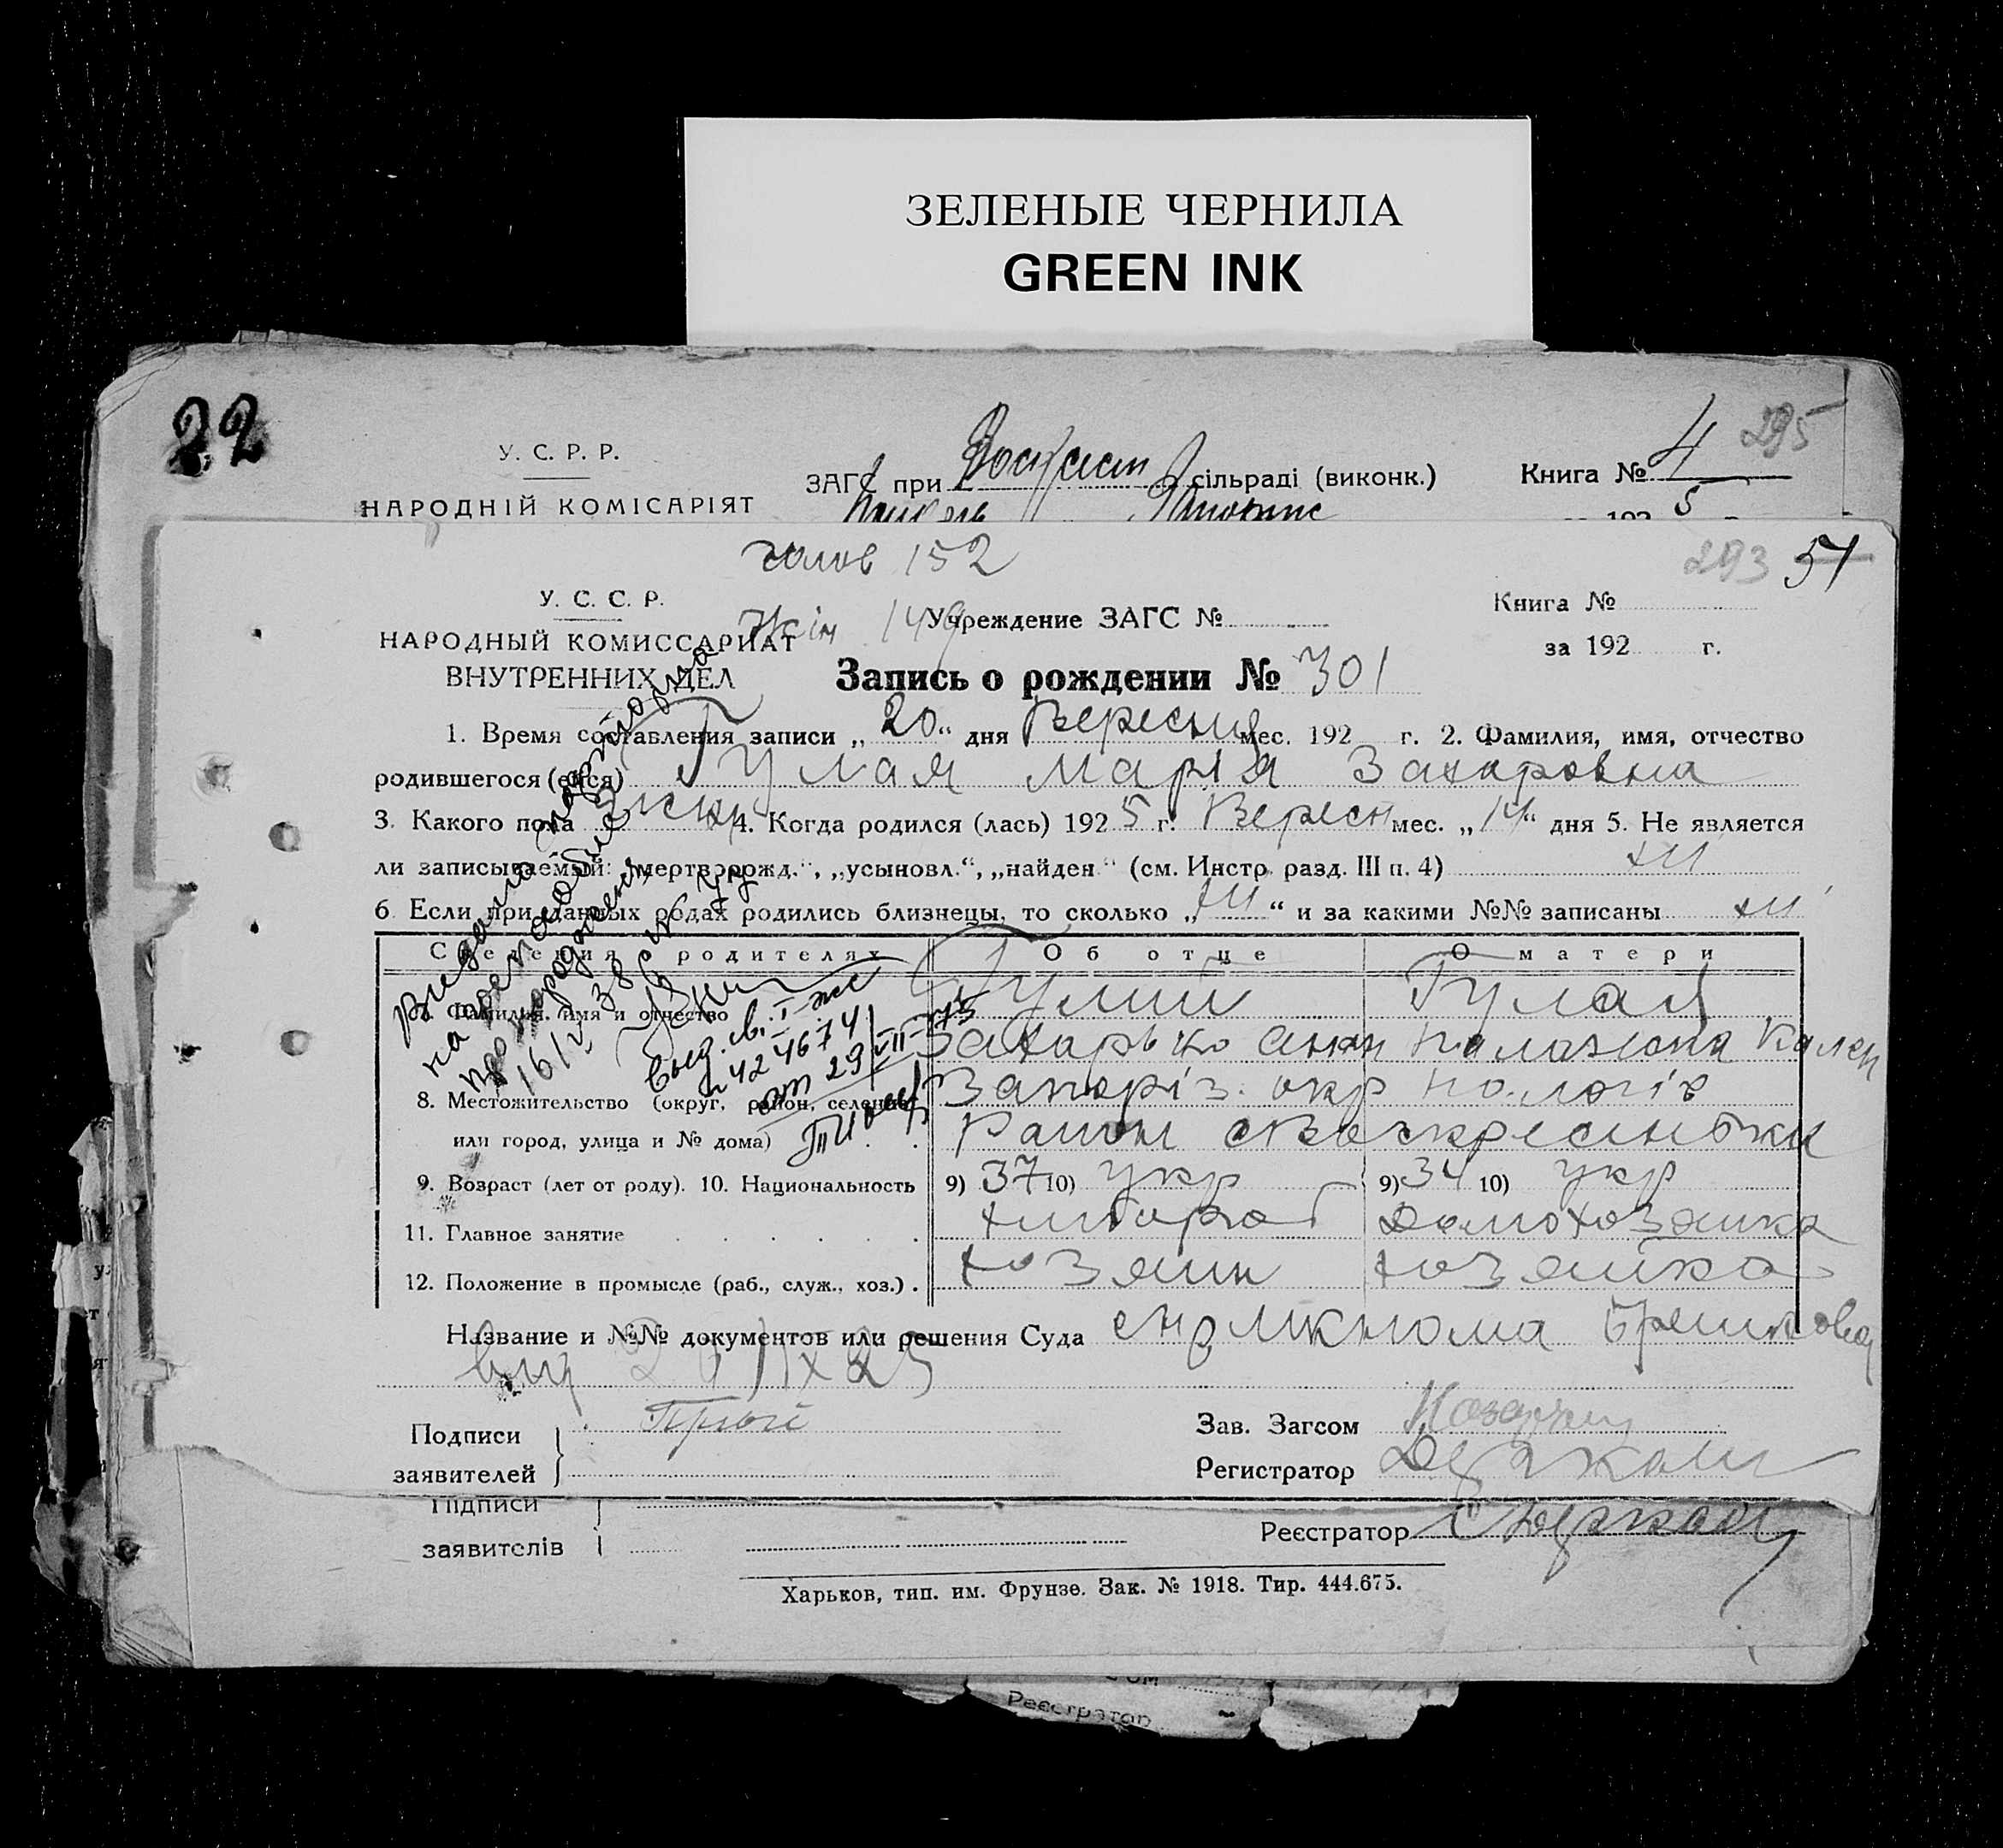 ЗЕЛЕНЫЕ ЧЕРНИЛА
GREEN INK
22
295
У. С. Р. Р.
НАРОДНІЙ КОМІСАРІЯТ
ЗАГС при сільраді (виконк.)
Книга № 4
192 5
голов 152
293 51
У. С. С. Р.
НАРОДНЫЙ КОМИССАРИАТ
ВНУТРЕННИХ ДЕЛ
жін 149
Учреждение ЗАГС №
Книга №
за 192 г.
Запись о рождении № 301
1. Время составления записи „20“ дня Вересня мес. 192 г. 2. Фамилия, имя, отчество
родившегося (ейся) Гулая Марія Захаровна
3. Какого пола жін 4. Когда родился (лась) 192 5 г. Вересн мес. „14“ дня 5. Не является
ли записываемый: „мертворожд.“, „усыновл.“, „найден“ (см. Инстр. разд. III п. 4) ни
6. Если при данных родах родились близнецы, то сколько „ни“ и за какими №№ записаны ни
Сведения о родителях Об отце О матери
7. Фамилия, имя и отчество Гулий Гулая
Захарько
8. Местожительство (округ, район, селение, Запоріз. окр Пологів
или город, улица и № дома) Район
9. Возраст (лет от роду). 10. Национальность 9) 37 10) укр 9) 34 10) укр
11. Главное занятие хлібороб Домохозяйка
12. Положение в промысле (раб., служ., хоз.) . хозяин хозяйка
Название и №№ документов или решения Суда
від
Подписи
заявителей
Зав. Загсом
Регистратор Держак
Видано
на
про народження
16/V 38
Выд. св. I-жс
№ 424674
от 29/VII-75
Підписи
заявителів
Реєстратор
Харьков, тип. им. Фрунзе. Зак. № 1918. Тир. 444.675.
Реєстратор